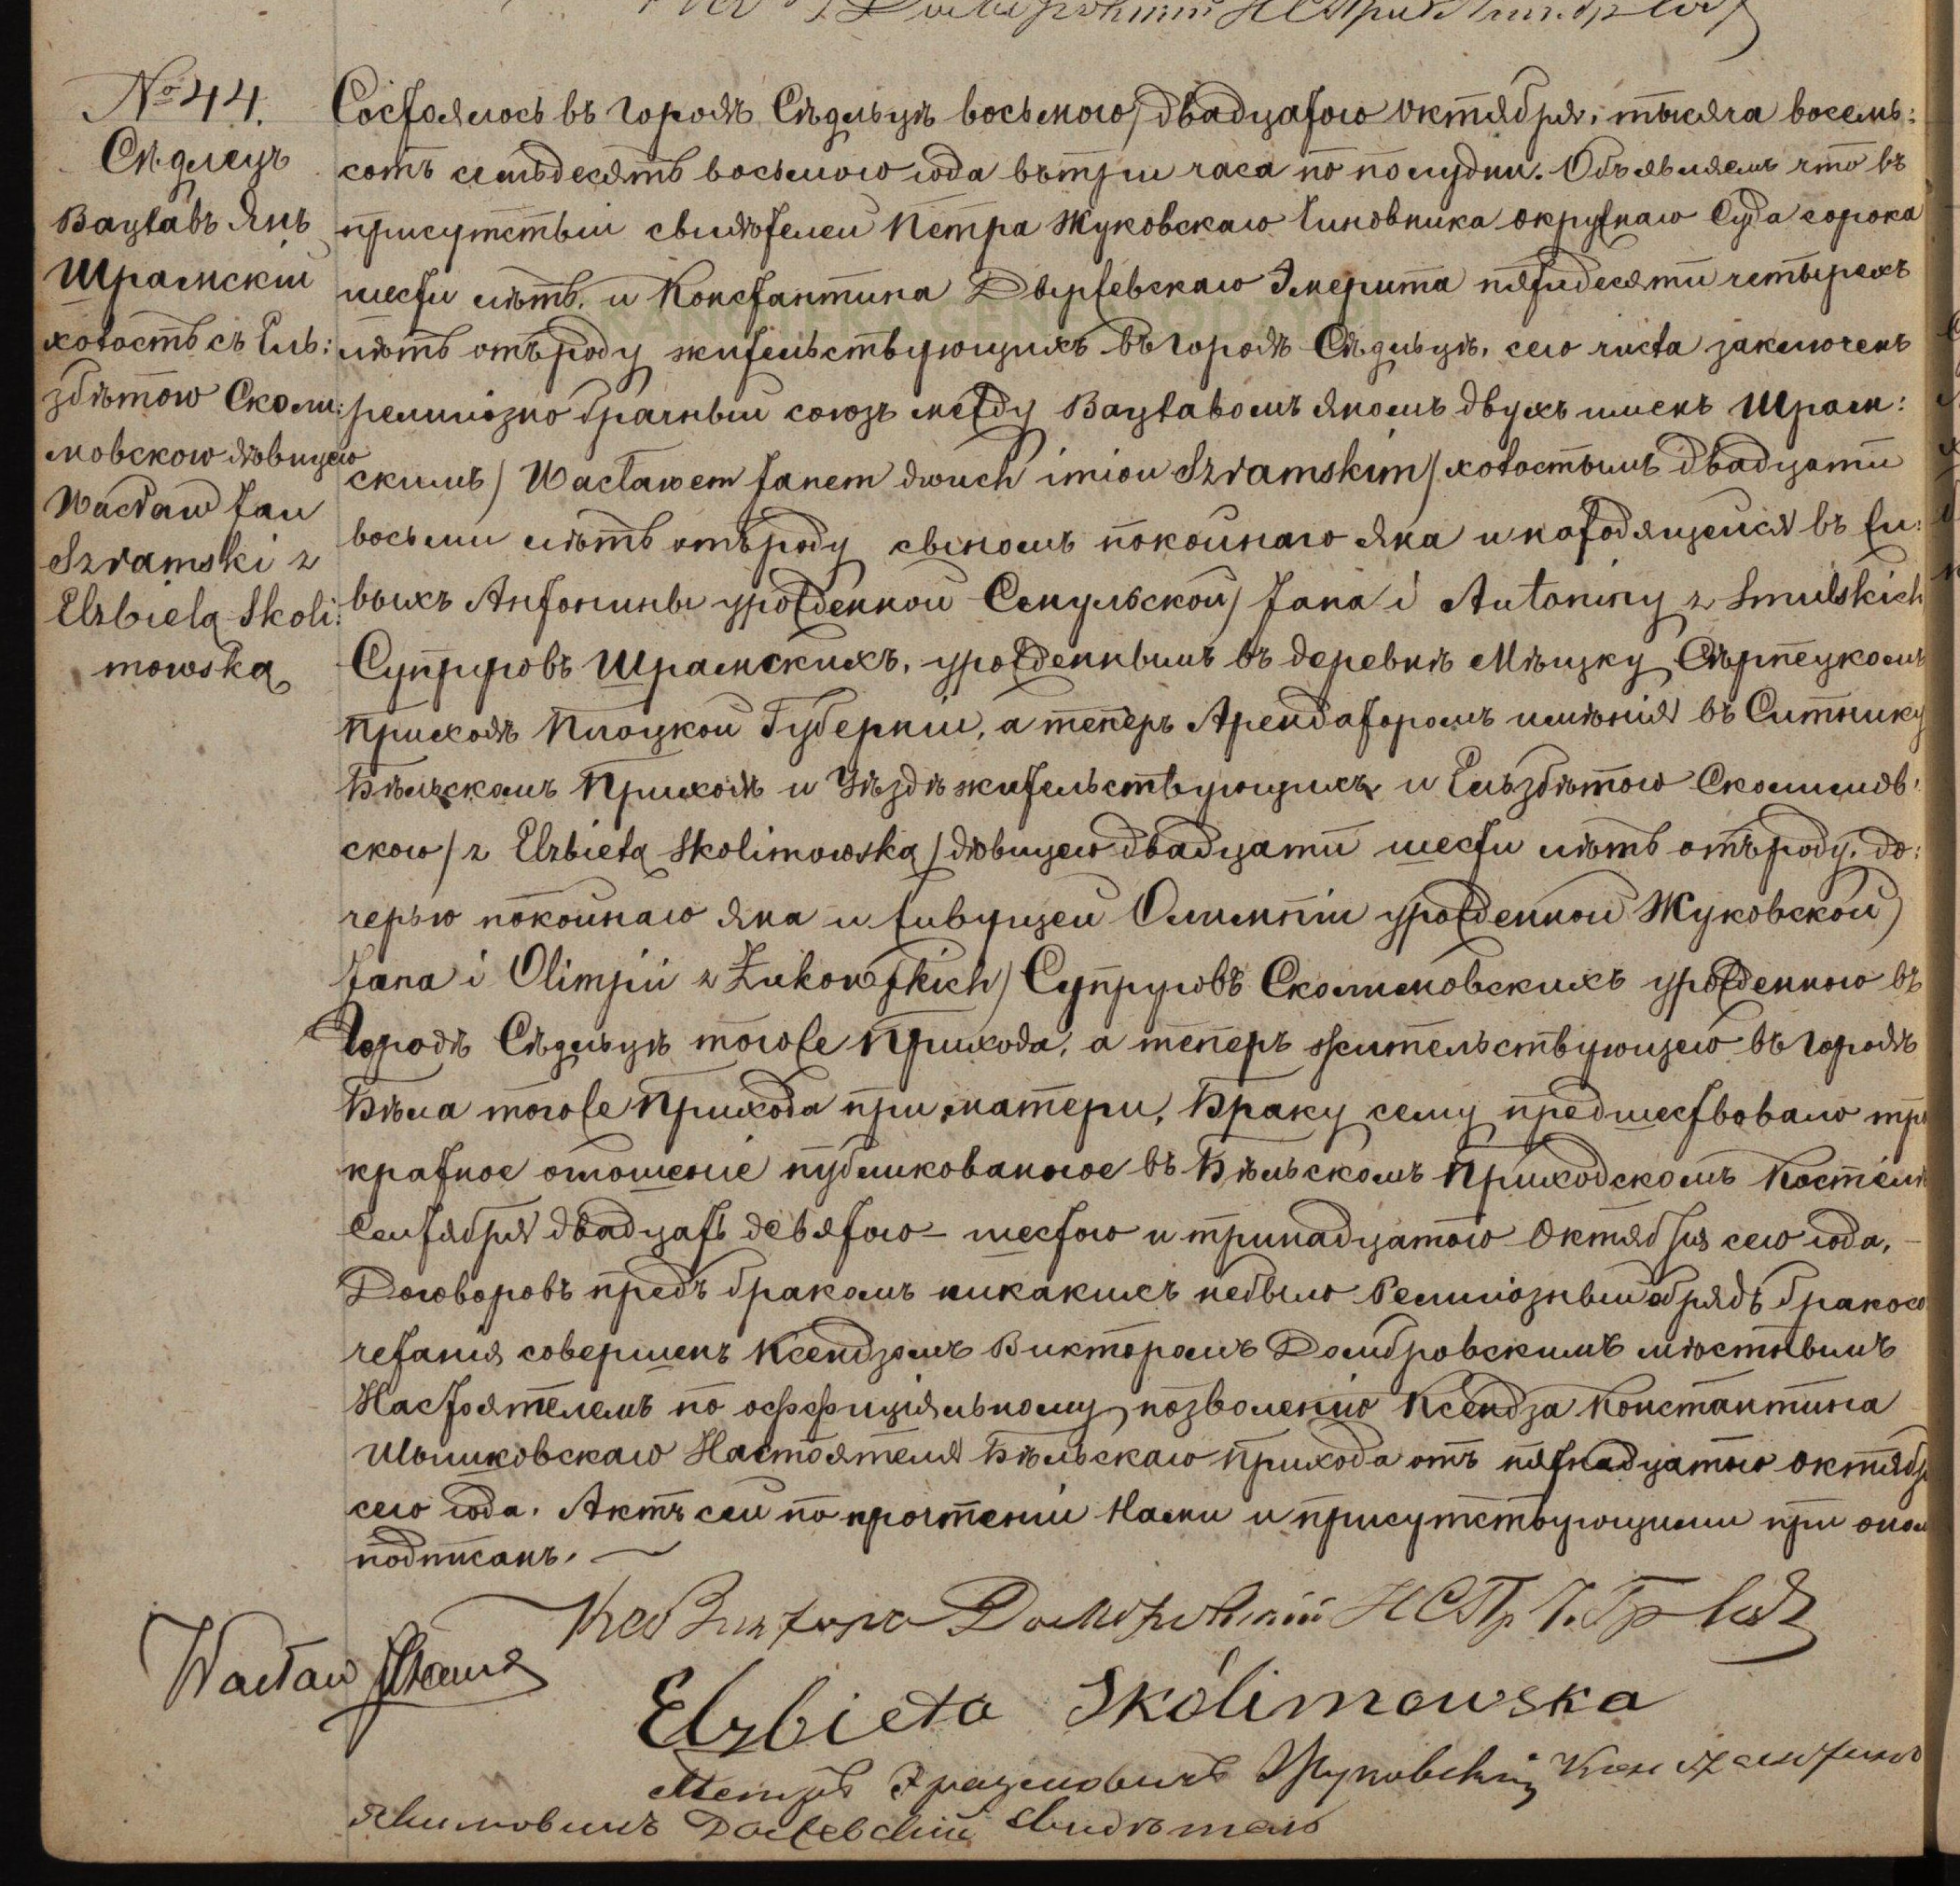 № 44.
Сѣдлецъ
Вацлавъ Янъ
Шрамскій
холостъ съ Ель:
збѣтою Сколи:
мовскою дѣвицею
Wacław Jan
Szramski z
Elzbietą Skoli:
mowską
Состоялось въ городѣ Сѣдльцѣ восьмого/двадцатого Октября, тысяча восемь:
сотъ семьдесятъ восьмого года въ три часа по полудни. Объявляемъ что въ
присутствіи свидѣтелей Петра Жуковскаго Чиновника Окружнаго Суда сорока
шести лѣтъ, и Константина Эмерита пятидесяти четырехъ
лѣтъ отъ роду жительствующихъ въ городѣ Сѣдльцѣ, сего числа заключенъ
религіозно брачный союзъ между Вацлавомъ Яномъ двухъ именъ Шрам:
скимъ / Wacławem Janem dwuch imion Szramskim / холостымъ двадцати
восьми лѣтъ отъ роду сыномъ покойнаго Яна и находящейся въ жи:
выхъ Антонины урожденной Смульской / Jana i Antoniny z Smulskich
Супруговъ Шрамскихъ, урожденнымъ въ деревнѣ Мѣцку Сѣрпецкомъ
Приходѣ Плоцкой Губерніи, а теперь Арендаторомъ имѣнія въ Ситнику
Бѣльскомъ Приходѣ и Уѣздѣ жительствующихъ и Ельзбѣтою Сколимов:
скою / z Elzbietą Skolimowską / дѣвицею двадцати шести лѣтъ отъ роду, до:
черью покойнаго Яна и живущей Олимпіи урожденной Жуковской /
Jana i Olimpii z Żukowskich / Супруговъ Сколимовскихъ урожденною въ
Городѣ Сѣдльцѣ тогоже Прихода, а теперь жительствующею въ городѣ
Бѣла тогоже Прихода при матери. Браку сему предшествовало трех
кратное оглошеніе публикованное въ Бѣльскомъ Приходскомъ Костелѣ
Сентября двадцать девятого – шестого и тринадцатого Октября сего года. –
Договоровъ предъ бракомъ никакихъ небыло Религіозный обрядъ бракосо
четанія совершенъ Ксендзомъ Викторомъ Домбровскимъ мѣстнымъ
Настоятелемъ по оффиціяльному позволенію Ксендза Константина
Настоятеля Бѣльскаго Прихода отъ пятнадцатого Октября
сего года. Актъ сей по прочтеніи Нами и присутствующими при ономъ
подписанъ. —
Кс Викторъ Домбровскій
Wacław
Elzbieta Skolimowska
Петръ Жуковскій Константинъ
свидѣтель